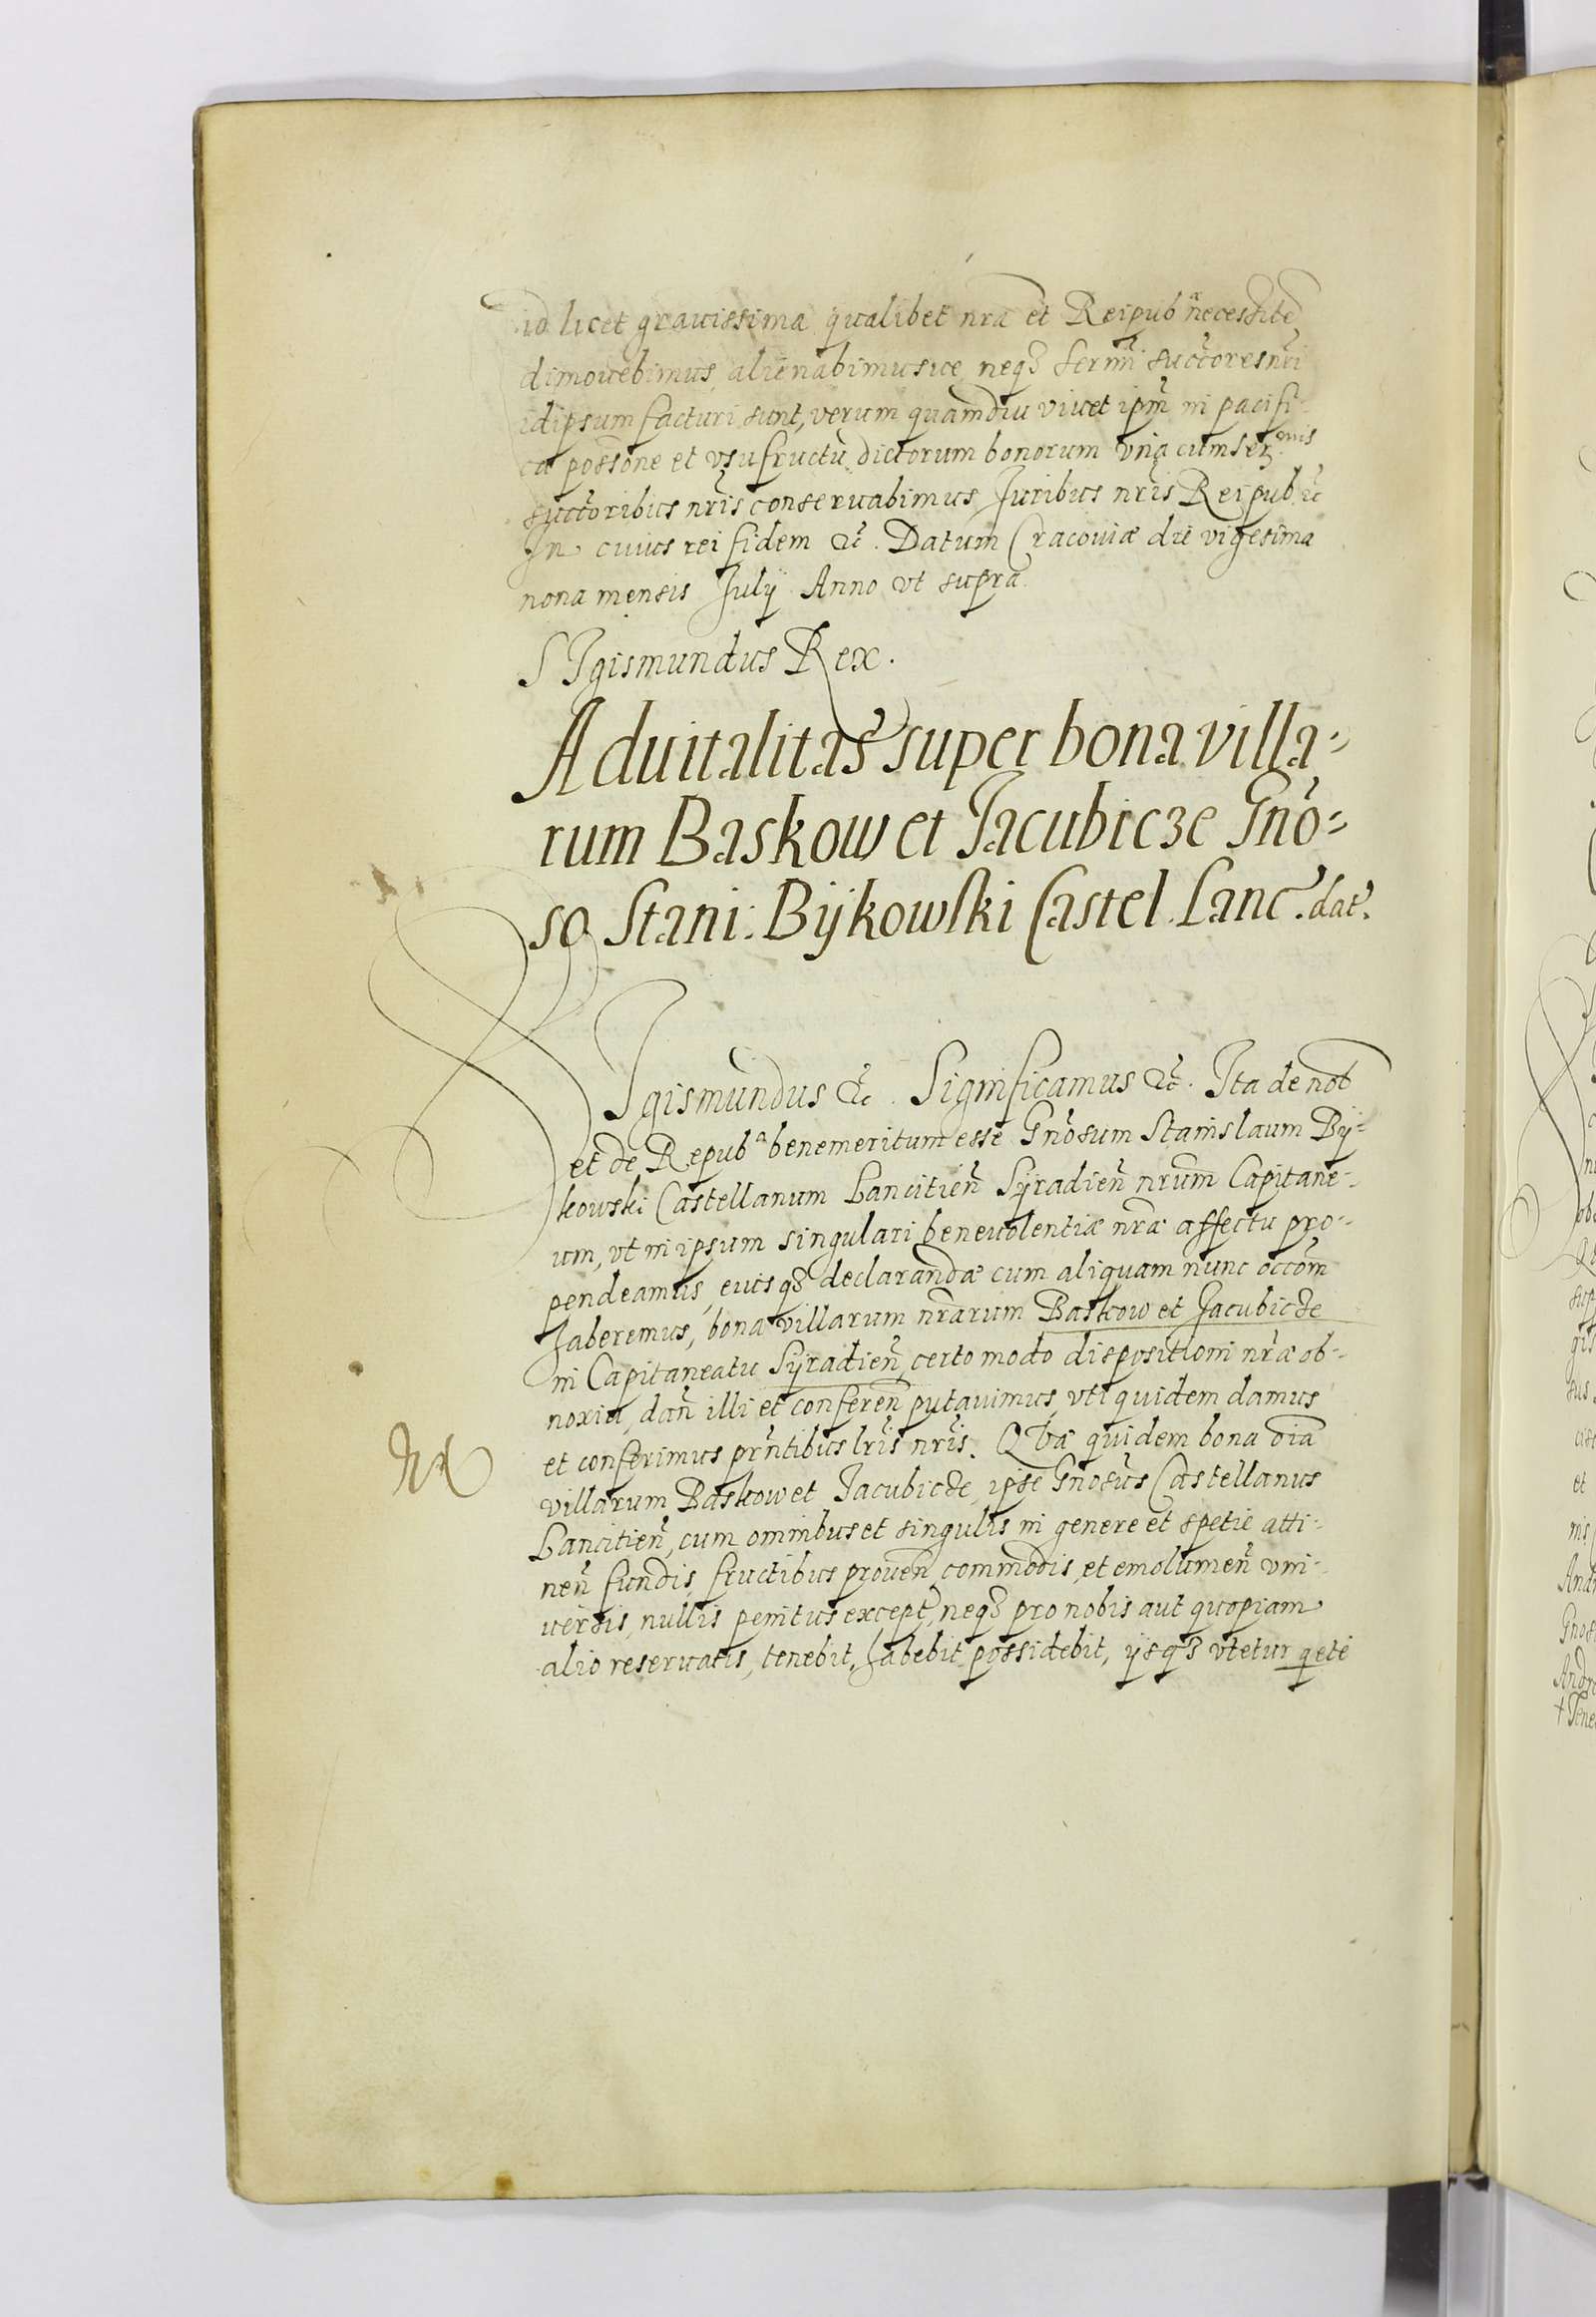 id licet grauissima qualibet nra et Reipubᵃᵉ necessite
dimouebimus, alienabimusue, neqȝ sermi succores nri
idipsum facturi sunt, verum quamdiu viuet ipm in pacifi-
ca possone et vsufructu dictorum bonorum vna cum Ser.mis
succoribus nris conseruabimus, Juribus nris Reipub. &c
In cuius rei fidem &c. Datum Cracouiæ die vigesima
nona mensis Julÿ Anno vt supra
SIgismundus Rex.
Aduitalitas super bona villa=
rum Baskow et Jacubicze Gno=
so Stani: Bÿkowski Castel. Lanc. dat.
SIgismundus &c. Significamus &c. Ita de nob
et de Repubᵃ benemeritum esse Gnosum Stanislaum Bÿ=
kowski Castellanum Lancitien Sÿradien nrum Capitane-
um, vt in ipsum singulari beneuolentiæ nræ affectu pro-
pendeamus, eiusqȝ declarandæ cum aliquam nunc occom
haberemus, bona villarum nrarum Baskow et Jacubicze
in Capitaneatu Sÿradien certo modo dispositioni nræ ob-
noxia, dan illi et conferen putauimus, vti quidem damus
et conferimus prntibus lris nris. QVæ quidem bona dia
villarum Baskow et Jacubicze, ipse Gnosus Castellanus
Lancitien, cum omnibus et singulis in genere et spetie atti-
nen fundis, fructibus prouen commodis, et emolumen vni-
uersis, nullis penitus except, neqȝ pro nobis aut quopiam
alio reseruatis, tenebit, habebit possidebit, ÿsqȝ vtetur qete